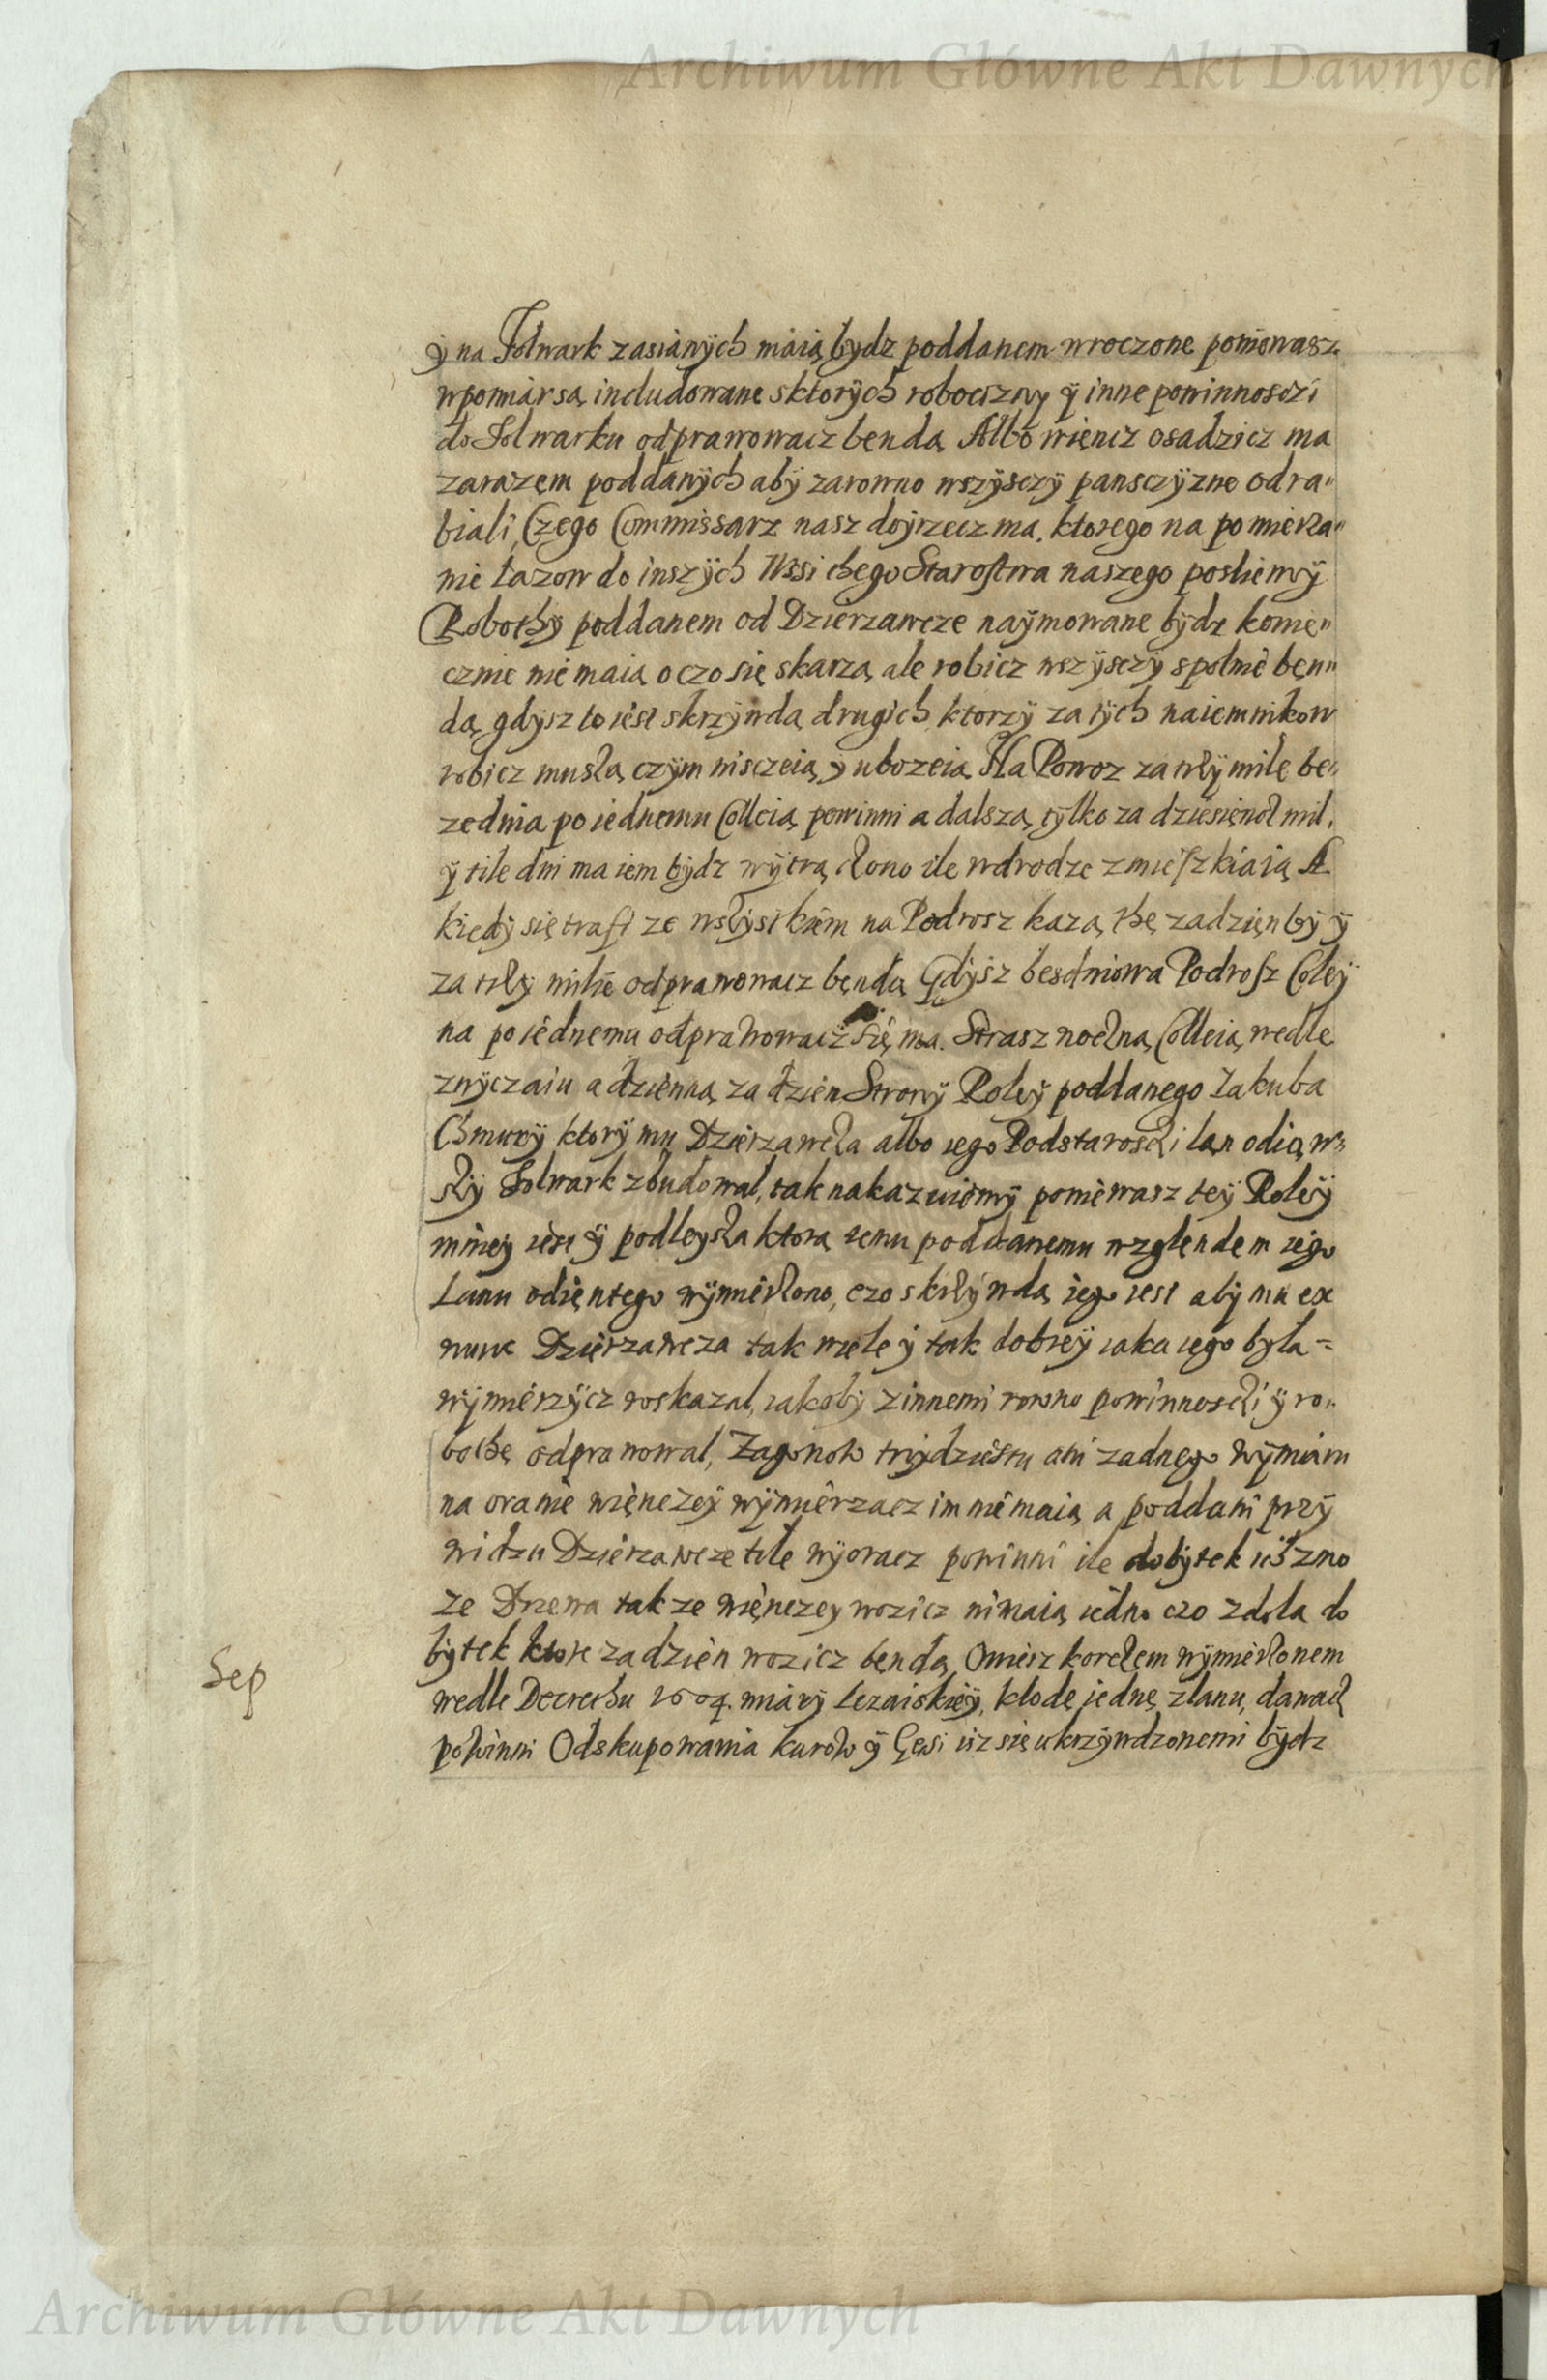 Archiwum Główne Akt Dawnych
ÿ na Folwark zasianÿch maią bydz poddanem wroczone poniewasz
wpomiar są includowane sktorÿch robocizny ÿ inne powinnosczi
do Folwarku odprawowacz bendą Albo wiencz osadzicz ma
zarazem poddanÿch abÿ zarowno wszÿsczÿ pansczÿzne odra"
biali, Czego Commissarz nasz doÿrzecz ma. ktorego na pomierza"
nie Łazow do inszÿch Wssi thego Starostwa naszego posliemÿ
Robothÿ poddanem od Dzierzawcze naÿmowane bÿdz konie"
cznie nie maią o czo się skarzą ale robicz wszÿsczÿ spolnie ben"
dą, gdÿsz to iest skrzÿwdą drugich, ktorzÿ za tÿch naiemnikow
robicz muszą czÿm nisczeią, ÿ ubozeią Na Powoz za trzÿ mile be"
zednia po iednemu Colleią powinni a dalszą tÿlko za dziesięncz mil,
ÿ tile dni ma iem bÿdz wÿtrączono ile wdrodze zmieszkiaią A
kiedÿ się trafi ze wszÿstkiem na Podrosz każą the za dzień bÿ ÿ
za trzÿ milie odprawowacz będą Gdÿsz besdniowa Podrosz Coleÿ
na po iednemu odprawowacz się ma. Strasz noczna Colleią wedle
zwÿczaiu a dzienną za dzien Stronÿ Roleÿ poddanego Jakuba
Chmurÿ ktorÿmu Dzierzawcza albo iego Podstarosczi lan odiąw"
szÿ Folwark zbudował, tak nakazuiemÿ poniewasz teÿ Roleÿ
mnieÿ iest ÿ podleÿsza ktorą temu poddanemu wzglendem iego
Lanu odiętego wÿmierzono, czo skrzÿwdą iego iest abÿ mu ex
nunc Dzierzawcza tak wiele ÿ tak dobreÿ iaka iego bÿla =
wÿmierzÿcz roskazal, iakobÿ zinnemi rowno powinnosczi ÿ ro"
bothę odprawowal, Zagonow trzÿdziestu ani zadnego wÿmiaru
na oranie więnczeÿ wÿmierzacz im nie maią a poddani przÿ
widzu Dzierzawcze tile wÿoracz powinni ile dobÿtek ich zmo
ze Drzewa takze więnczeÿ wozicz nimaią iedno czo zdoła do
bÿtek ktore za dzien wozicz bendą Owies korczem wÿmierzonem
Sep
wedle Decrethu 1604. miarÿ Lezaiskieÿ, kłodę iednę, zlanu, dawacz
powinni Od skupowania kurow ÿ Gęsi iż się ukrzÿwdzonemi bÿdz
Archiwum Główne Akt Dawnych